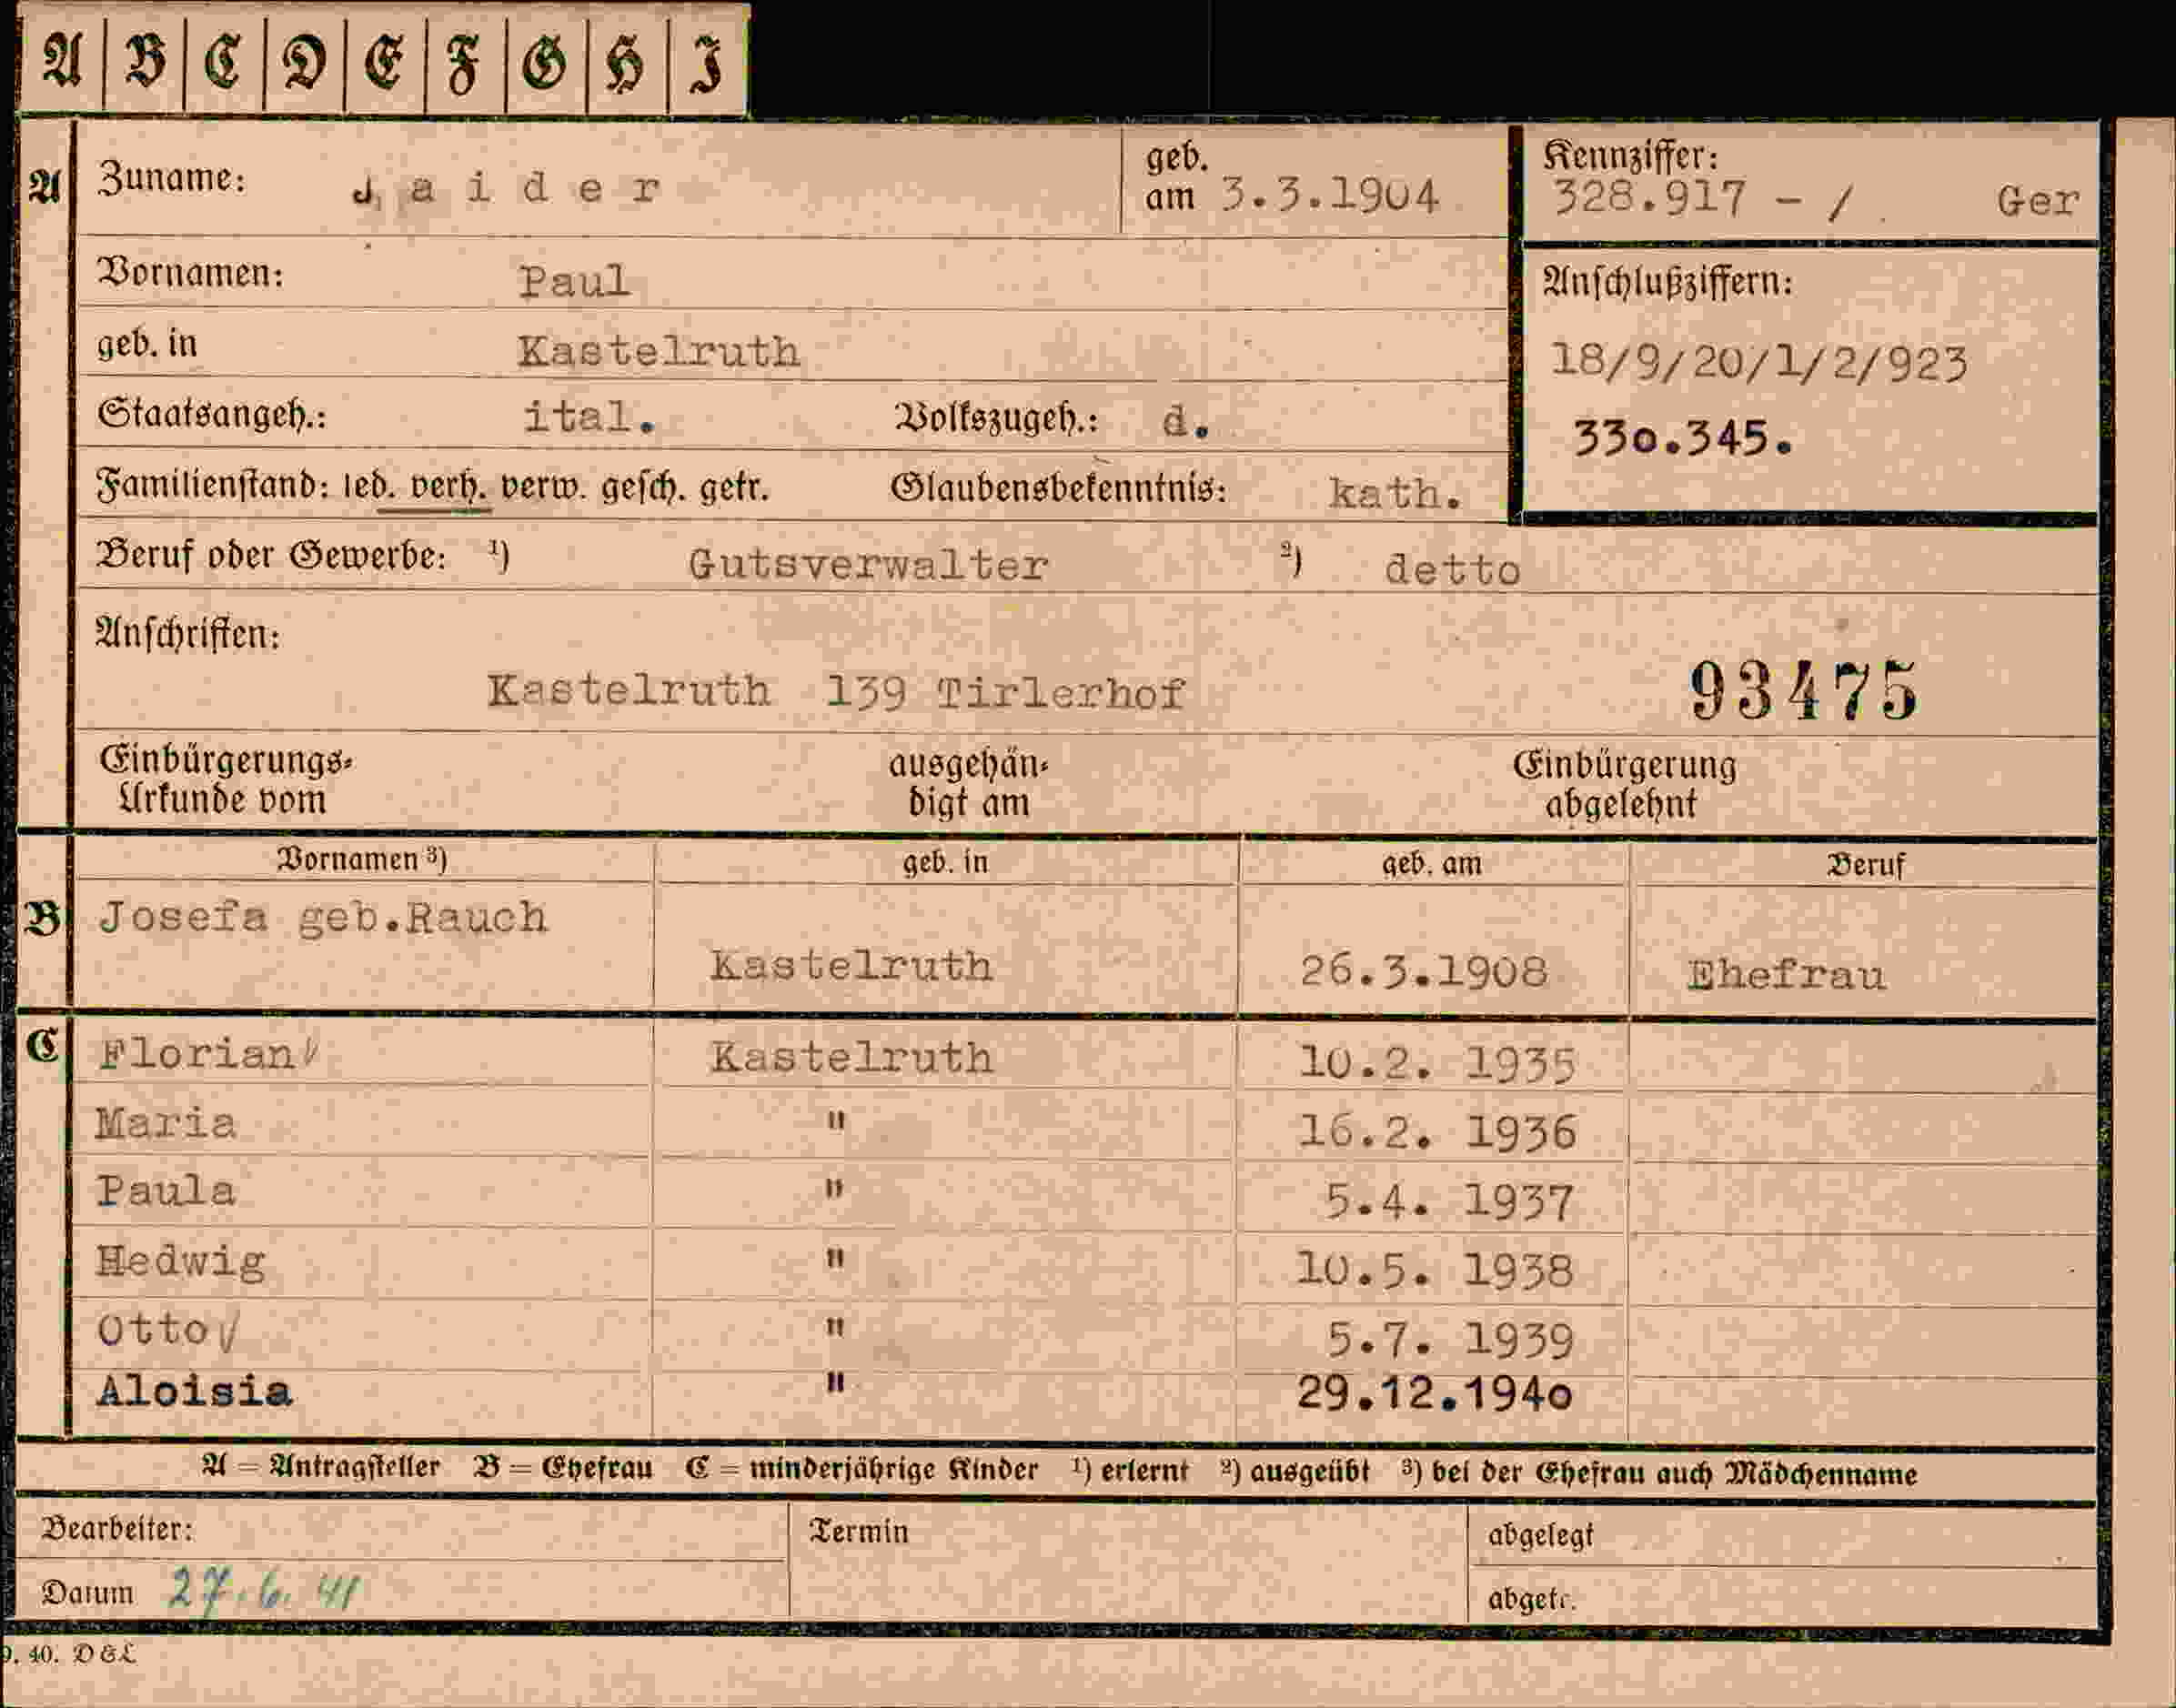 A B C D E F G H I
A Zuname: J a i d e r geb. am 3.3.1904 Kennziffer: 328.917 - / Ger
Vornamen: Paul Anschlußziffern:
geb. in Kastelruth 18/9/20/1/2/923
Staatsangeh.: ital. Volkszugeh.: d. 330.345.
Familienstand: led. verh. verw. gesch. getr. Glaubensbekenntnis: kath.
Beruf oder Gewerbe: ¹) Gutsverwalter ²) detto
Anschriften:
Kastelruth 139 Tirlerhof 93475
Einbürgerungs- ausgehän- Einbürgerung
Urkunde vom digt am abgelehnt
Vornamen ³) geb. in geb. am Beruf
B Josefa geb.Rauch
Kastelruth 26.3.1908 Ehefrau
C Florian Kastelruth 10.2. 1935
Maria " 16.2. 1936
Paula " 5.4. 1937
Hedwig " 10.5. 1938
Otto " 5.7. 1939
Aloisia " 29.12.1940
A = Antragsteller B = Ehefrau C = minderjährige Kinder ¹) erlernt ²) ausgeübt ³) bei der Ehefrau auch Mädchenname
Bearbeiter: Termin abgelegt
Datum 27.6.41 abgetr.
9. 40. D&L